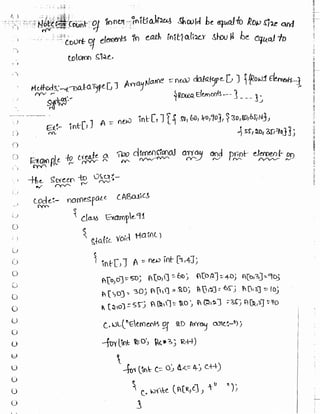 Note:- Count of inner-initializers should be equal to Row size and
count of elements in each initializer should be equal to
column size.
Method5:- DataType[,] ArrayName = new datatype[,] {{Row1 Elements--}
Syntax:- {Row2 Elements--- } --- };
Ex:- int[,] A = new int[,] { { 50, 60, 40, 90}, { 30, 80, 65, 10},
{ 55, 20, 35, 70}};
Example to create a Two dimensional array and print element on
the screen to user:-
Code:- namespace CABasics
{ class Example91
{
static void Main( )
{
int[,] A = new int [3,4];
A[0,0]=50; A[0,1]=60; A[0,2]=40; A[0,3]=90;
A[1,0]= 30; A[1,1]= 80; A[1,2]= 65; A[1,3]=10;
A[2,0]=55; A[2,1]= 20; A[2,2] =35; A[2,3]=70
C.WL("Elements of 2D Array are:-");
for(int R=0; R<=3; R++)
{
for(int C= 0; C<=4; C++)
{ C.Write (A[R,C] , + " ");
}